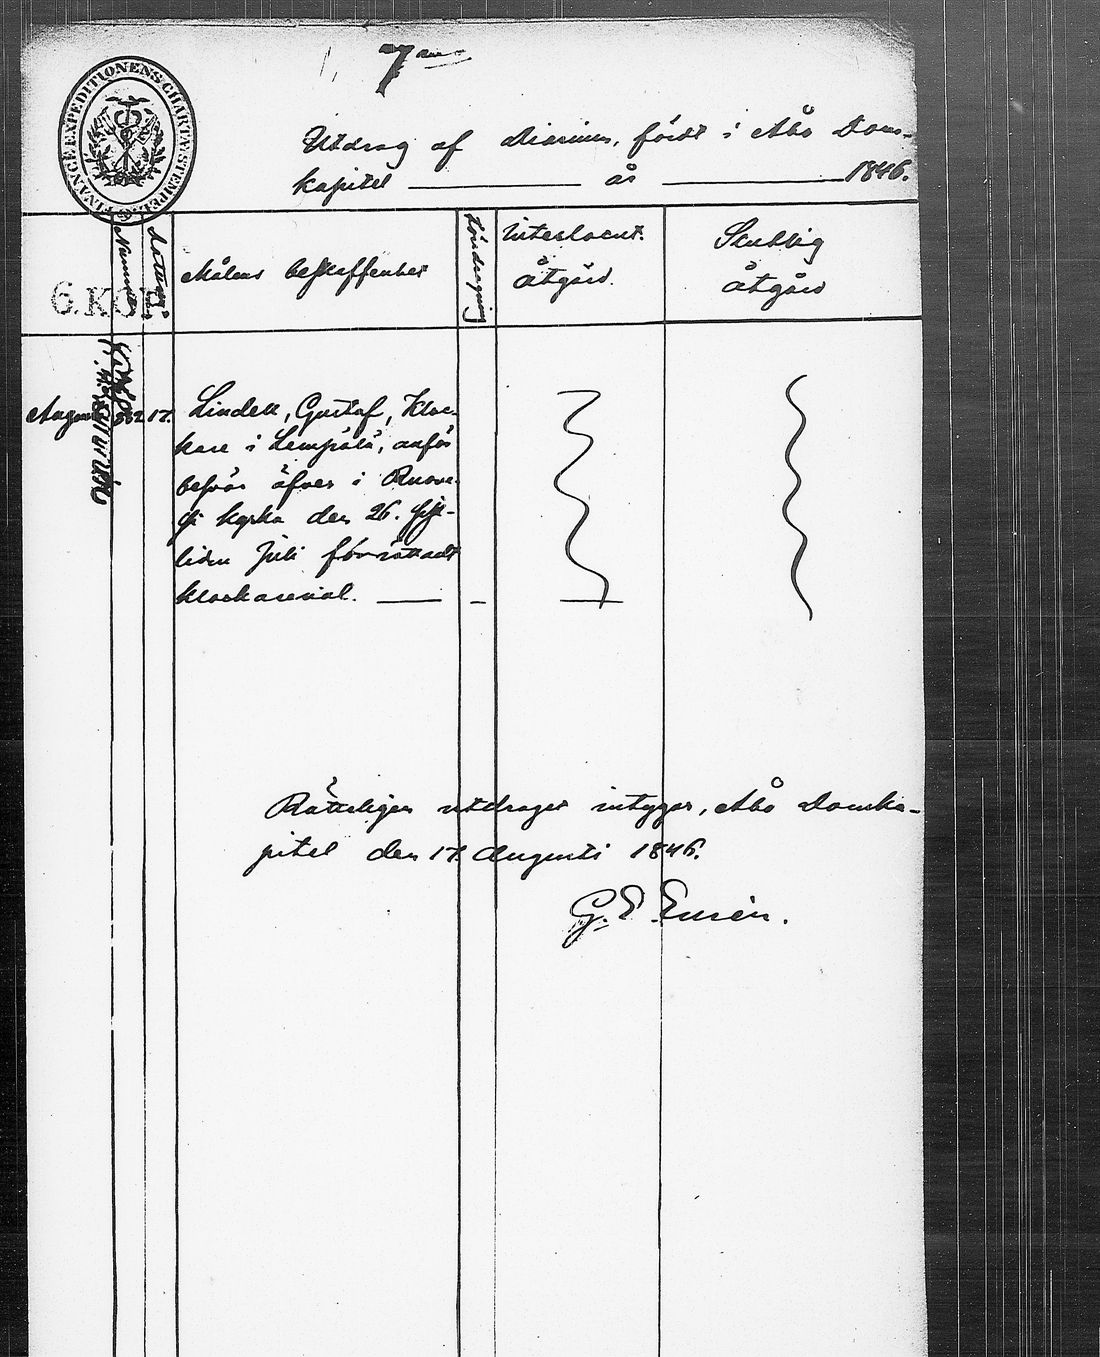 7
FINANCE EXPEDITIONENS CHARTÆ STEMPEL
Utdrag af Diarium, fördt i Åbo Dom-
kapitel år 1846.
Nummer
Målens beskaffenhet
Föredragning
Interlocut.
åtgärd.
Slutlig
åtgärd
6. KOP.
Augusti 17. Lindell, Gustaf, Kloc-
kare i Lempälä, anför
besvär öfver i Ruove-
si kyrka den 26. sist-
liden Juli förrättadt
klockareval.
Rätteligen utdraget intygar, Åbo Domka-
pitel den 17. Augusti 1846.
G. E. Eurén.